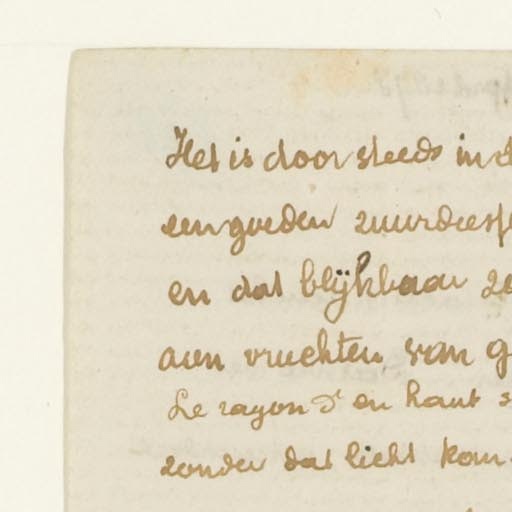 Het is door steeds in d
een goeden zuurdees
en dat blijkbaar z
aan vruchten van g
Le rayon d'en haut s
zonder dat licht kan